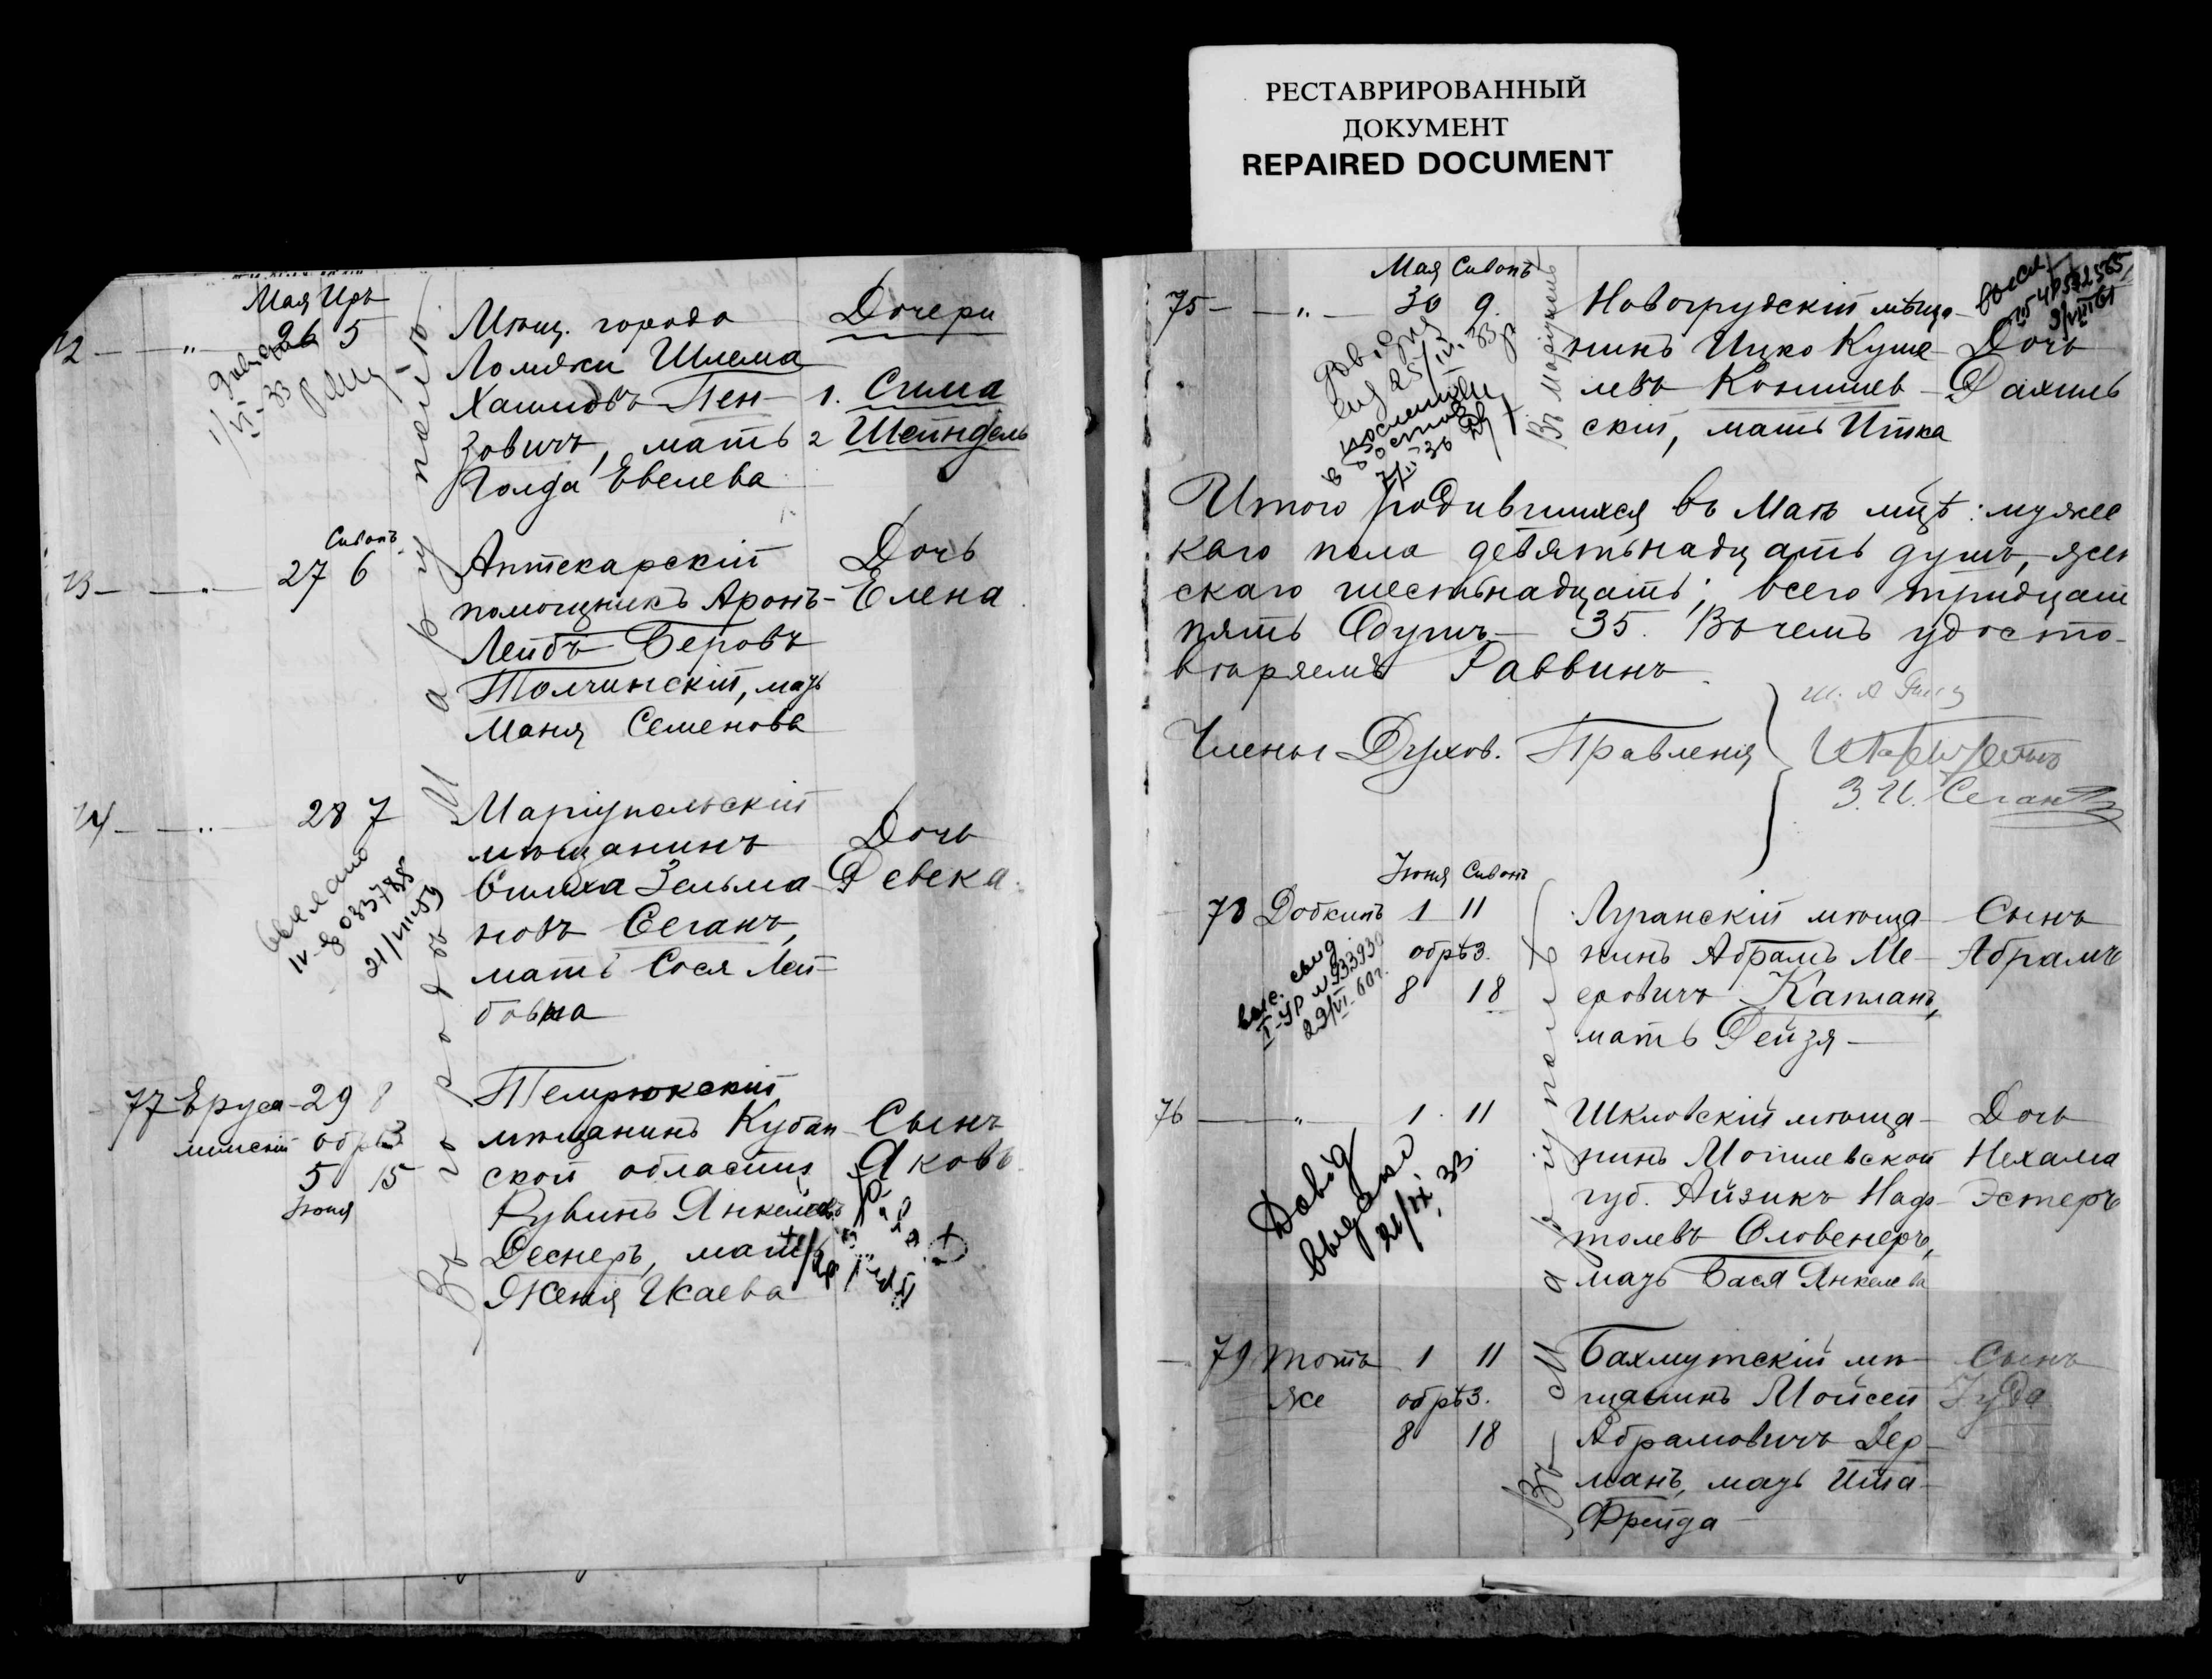 РЕСТАВРИРОВАННЫЙ
ДОКУМЕНТ
REPAIRED DOCUMENT
Мая Иръ
72 — „ — 26 5
Мѣщ. города
Ломжи Шлема
Хаимовъ Пен-
зовичъ, мать
Голда Евелева
Дочери
1. Сима
2 Шейндель
Въ городѣ Маріуполѣ
Сивонъ
73 — „ — 27 6
Аптекарскій
помощникъ Аронъ-
Лейбъ Беровъ
Толчинскій, мать
Маня Семенова
Дочь
Елена
74 — „ — 28 7
Маріупольскій
мѣщанинъ
Симха Зельма-
новъ Сеганъ,
мать Сося Лей-
бовна
Дочь
Ревека
выслано
IV-
21/VIII 59
77 Еруса- 29 8
лимскій обрѣз
5 15
Іюня
Темрюкскій
мѣщанинъ Кубан-
ской области
Рувинъ Янкелевъ
Деснеръ, мать
Женя Икаева
Сынъ
Яковъ
Мая Сивонъ
75 — „ — 30 9.
Въ Маріуполѣ
Новогрудскій мѣща-
нинъ Ицко Куше-
левъ Копшиев-
скій, мать Итка
Дочь
Рахиль
Итого родившихся въ Маѣ мцѣ: мужес
каго пола девятьнадцать душъ, жен
скаго шестьнадцать; всего тридцать
пять душъ — 35. Въ чемъ удосто-
вѣряемъ Раввинъ
Члены Духов. Правленія
З. И. Сеганъ
Іюня Сивонъ
78 Добкинъ 1 11
обрѣз.
8 18
выс. свид.
I-УР № 933930
29/VI-60г.
Луганскій мѣща-
нинъ Абрамъ Ме-
еровичъ Капланъ,
мать Рейзя —
Сынъ
Абрамъ
Въ Маріуполѣ
76 — „ — 1 11
Довід
видано
21/IX 33
Шкловскій мѣща-
нинъ Могилевской
губ. Айзикъ Наф-
толевъ Словенеръ,
мать Бася Янкелева
Дочь
Нехама
Эстеръ
79 Тотъ 1 11
же обрѣз.
8 18
Бахмутскій мѣ-
щанинъ Мойсей
Абрамовичъ Дер-
манъ, мать Ита-
Фрейда
Сынъ
Іуда